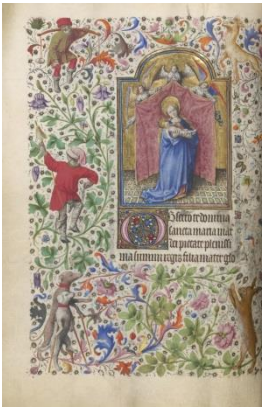 Obsecro te domina
sancta maria mat
dei pietate plenissi
ma summi regis filia mater glo